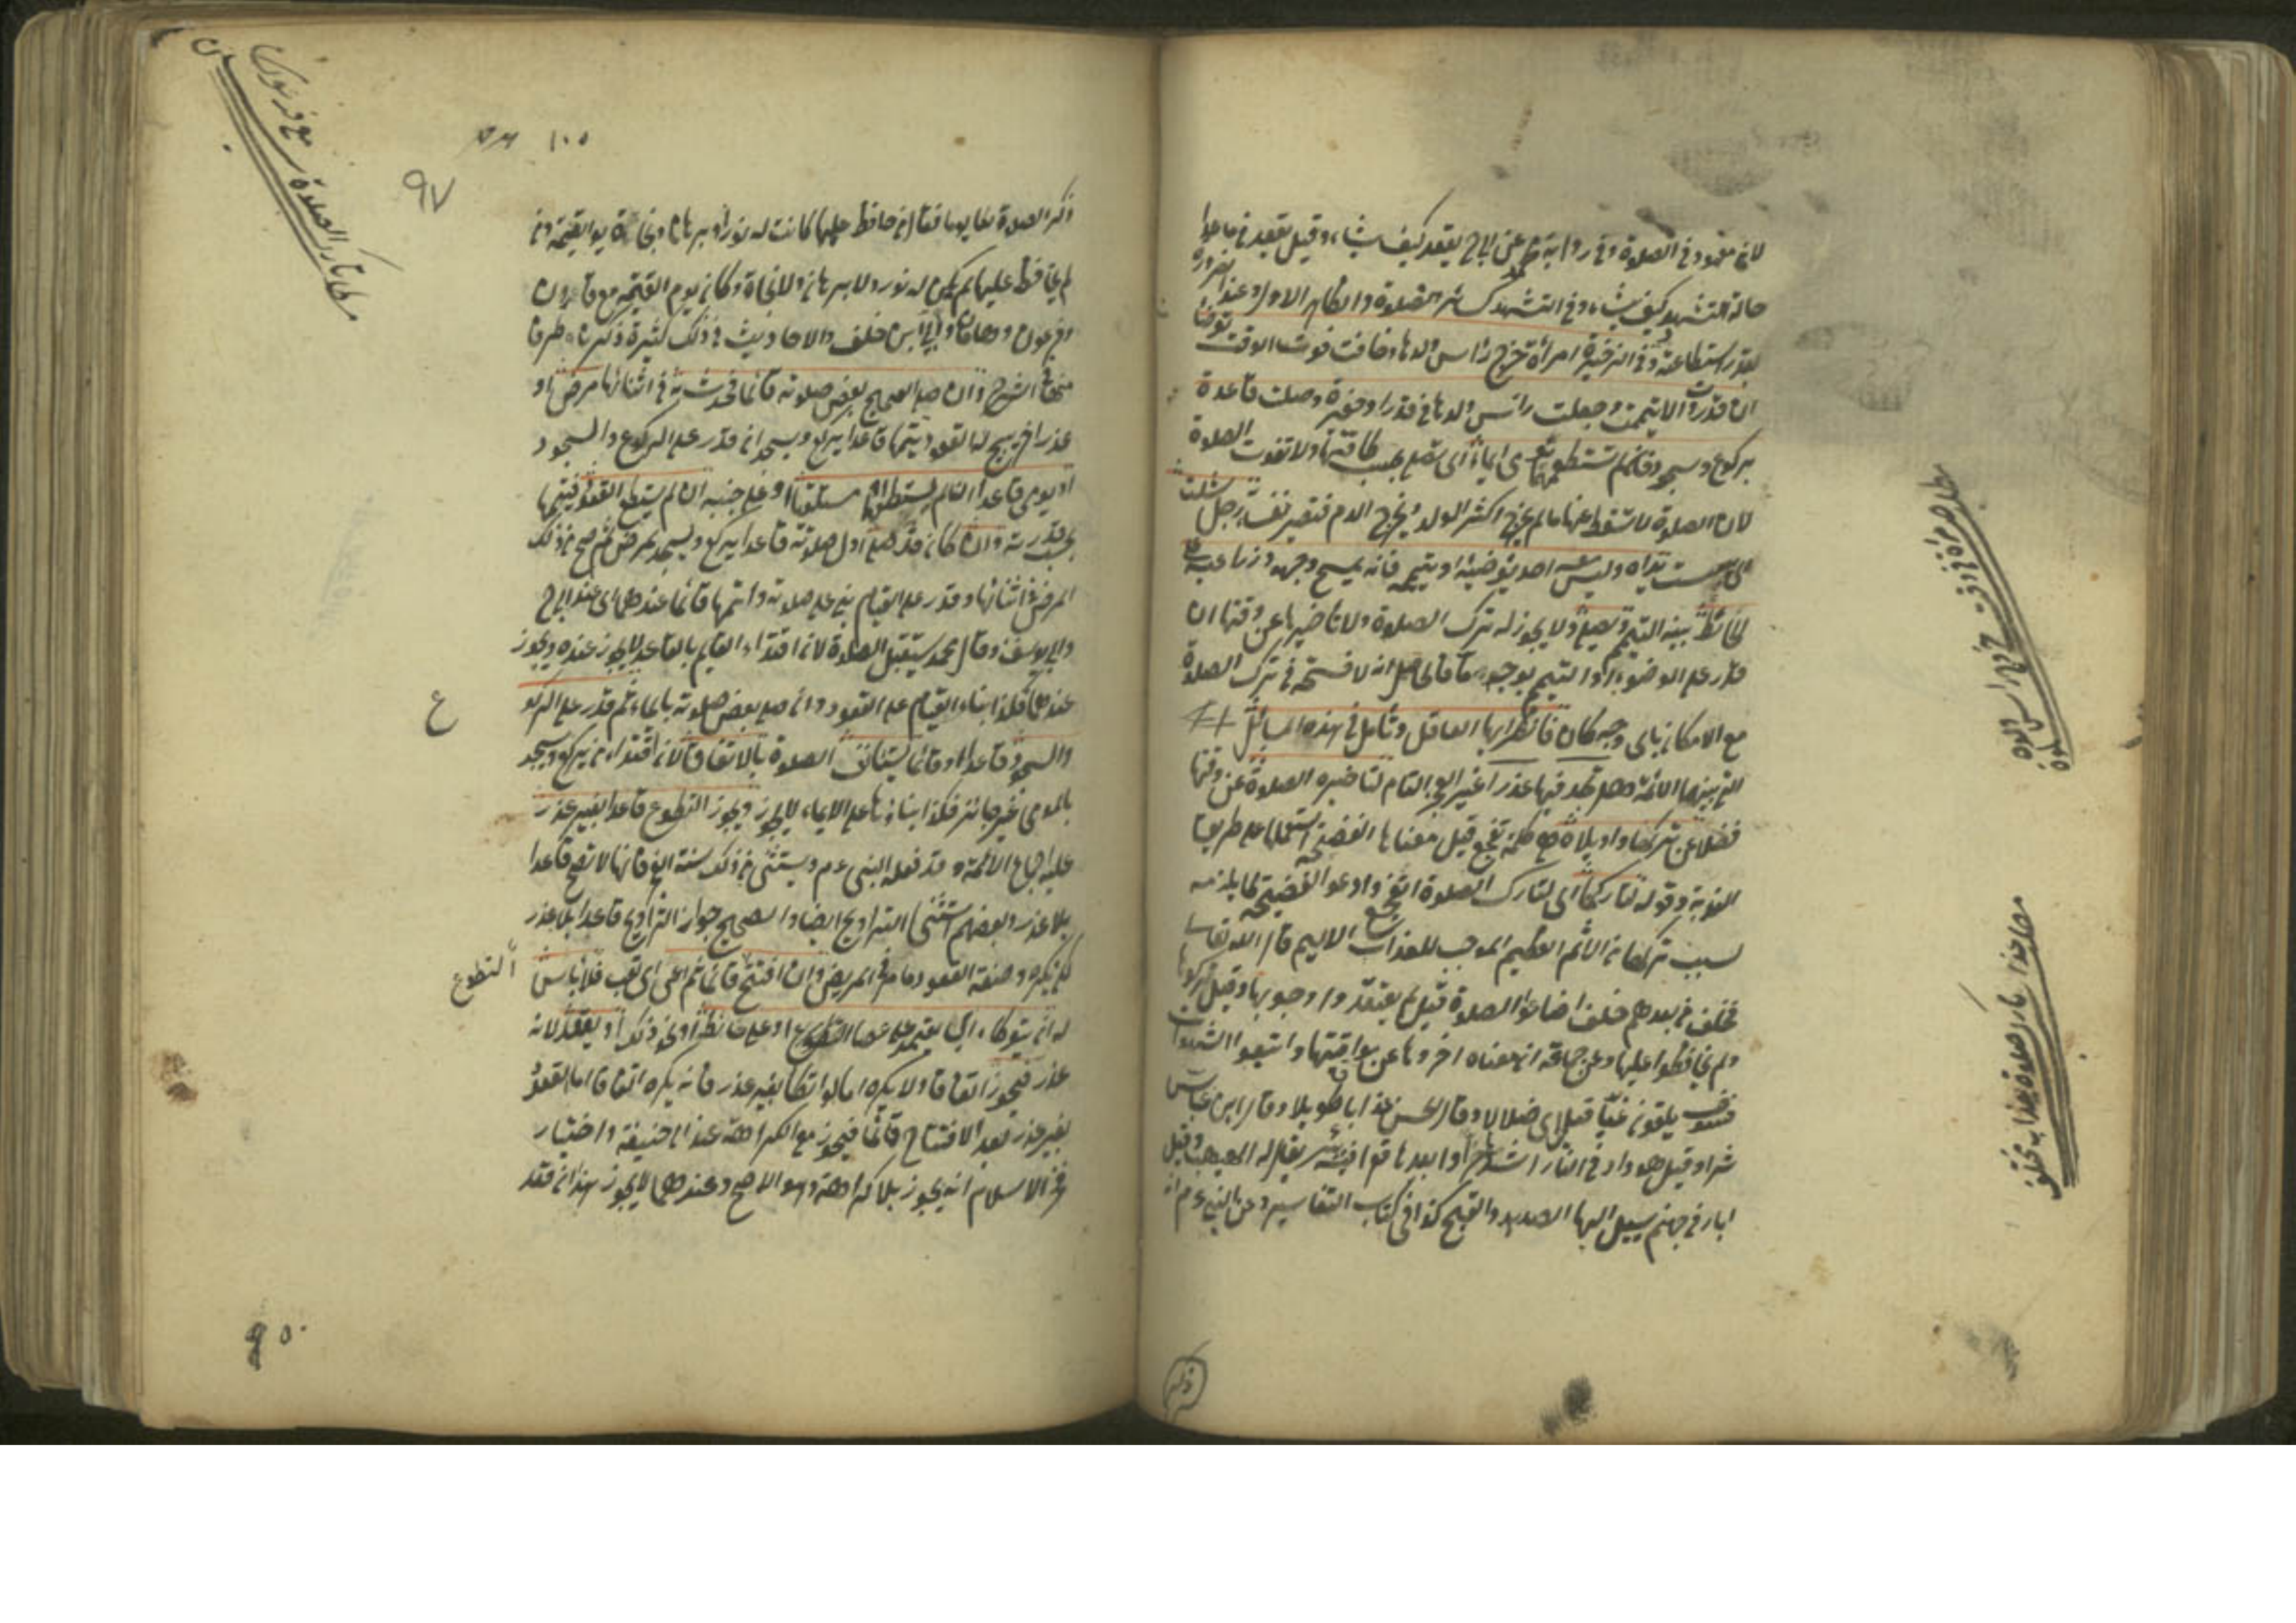 لانه معهود في الصلوة وفي رواية محمد عن ابي ح يقعد كيف شاء وقيل يقعد فيما عدا
حالة التشهد كيف شاء وفي التشهد كسائر الصلوة والظاهر الاول وعند الضرورة
بقدر استطاعته وفي الذخيرة امرأة خرج رأس ولدها وخافت فوت الوقت توضأت
ان قدرت والا تيممت وجعلت رأس ولدها في قدر او حفيرة وصلت قاعدة
بركوع وسجود فان لم تستطعهما تومي ايماء اي تصلي بحسب طاقتها ولا تفوت الصلوة
لان الصلوة لا تسقط عنها ما لم يخرج اكثر الولد ويخرج الدم فتصير نفساء رجل شلت
يداه وليس معه احد يوضيه او ييممه فانه يمسح وجهه وذراعيه على
الحائط بنية التيمم ويصلي ولا يجوز له ترك الصلوة ولا تأخيرها عن وقتها ان
قدر على الوضوء او التيمم بوجه ما فالحاصل انه لا فسحة في ترك الصلوة
مع الامكان باي وجه كان فانظر ايها العاقل وتأمل في هذه المسائل
التي بينها الائمة وهل تجد فيها عذرا غير العجز التام لتأخيره الصلوة عن وقتها
فضلا عن تركها واويلاه هي كلمة تفجع قيل معناها الفضيحة استعملها على طريق
الندبة وقوله لتاركها اي لتارك الصلوة اتفجع وادعو الفضيحة لما يلزمه
بسبب تركها من الاثم العظيم الموجب للعذاب الاليم قال الله تعالى
فخلف من بعدهم خلف اضاعوا الصلوة قيل لم يعتقدوا وجوبها وقيل تركوها
ولم يحافظوا عليها وعن جماعة ان معناه اخروها عن مواقيتها واتبعوا الشهوات
فسوف يلقون غيا قيل اي ضلالا وقال الحسن عذابا طويلا وقال ابن عباس
شرا وقيل هو واد في النار اشدها حرا وابعدها قعرا فيه بئر يقال له الهيهب وقيل
ابار في جهنم يسيل اليها الصديد والقيح كذا في كتاب التفاسير وعن النبي ع م انه
١٠٥
٩٧
ذكر الصلوة يوما فقال من حافظ عليها كانت له نورا وبرهانا ونجاة يوم القيمة ومن
لم يحافظ عليها لم يكن له نور ولا برهان ولا نجاة وكان يوم القيمة مع قارون
وفرعون وهامان وابي ابن خلف والاحاديث في ذلك كثيرة ذكرناه طرفا
منها في الشرح وان صلى الصحيح بعض صلوته قائما فحدث به في اثنائها مرض او
عذر اخر يبيح له القعود يتمها قاعدا يركع ويسجد ان قدر على الركوع والسجود
او يومي قاعدا ان لم يستطعهما او مستلقيا او على جنبه ان لم يستطع القعود فيتمها
بحسب قدرته وان كان قد صلى اول صلوته قاعدا يركع ويسجد لمرض ثم صح من ذلك
المرض في اثنائها وقدر على القيام بنى على صلوته واتمها قائما عندهما اي عند ابي ح
وابي يوسف وقال محمد يستقبل الصلوة لان اقتداء القايم بالقاعد لا يجوز عنده ويجوز
عندهما فكذا ابناء القيام على القعود وان صلى بعض صلوته بايماء ثم قدر على الركوع
والسجود قاعدا او قائما يستأنف الصلوة بالاتفاق لان اقتداء من يركع ويسجد
بالمومي غير جائز فكذا بناؤها على الايماء لا يجوز ويجوز التطوع قاعدا بغير عذر
عليه اجماع الائمة وقد فعله النبي ع م ويستثنى من ذلك سنة الفجر فانها لا تصح قاعدا
بلا عذر وبعضهم استثنى التراويح ايضا والصحيح جواز التراويح قاعدا بلا عذر
لكن يكره وصفة القعود ما مر في المريض وان افتتح قائما ثم اعيى اي تعب فلا بأس
التطوع
له ان يتوكأ اي يعتمد على عصا او على حائط او نحو ذلك او يقعد لانه
عذر فيجوز اتفاقا ولا يكره اما لو اتكأ بغير عذر فانه يكره اتفاقا اما القعود
بغير عذر بعد الافتتاح قائما فيجوز مع الكراهة عند ابي حنيفة واختيار
فخر الاسلام انه يجوز بلا كراهة وهو الاصح وعندهما لا يجوز هذا ان قعد